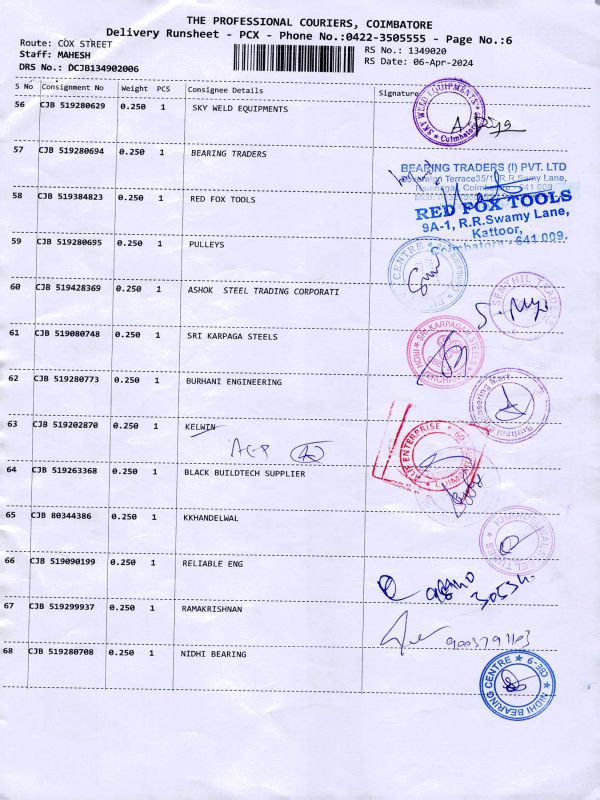 THE PROFESSIONAL COURIERS, COIMBATORE
Delivery Runsheet - PCX - Phone No.:0422-3505555 - Page No.:6
Route: COX STREET
RS No.: 1349020
Staff: MAHESH
RS Date: 06-Apr-2024
DRS No.: DCJB134902006
S No Consignment No Weight PCS Consignee Details Signature
56 CJB 519280629 0.250 1 SKY WELD EQUIPMENTS
SKY WELD EQUIPMENTS
Coimbatore
57 CJB 519280694 0.250 1 BEARING TRADERS
BEARING TRADERS (I) PVT. LTD
58 CJB 519384823 0.250 1 RED FOX TOOLS
RED FOX TOOLS
9A-1, R.R.Swamy Lane,
Kattoor,
Coimbatore - 641 009.
59 CJB 519280695 0.250 1 PULLEYS
60 CJB 519428369 0.250 1 ASHOK STEEL TRADING CORPORATI
61 CJB 519080748 0.250 1 SRI KARPAGA STEELS
SRI KARPAGA STEEL
62 CJB 519280773 0.250 1 BURHANI ENGINEERING
63 CJB 519202870 0.250 1 KELWIN
64 CJB 519263368 0.250 1 BLACK BUILDTECH SUPPLIER
65 CJB 80344386 0.250 1 KKHANDELWAL
66 CJB 519090199 0.250 1 RELIABLE ENG
67 CJB 519299937 0.250 1 RAMAKRISHNAN
68 CJB 519280708 0.250 1 NIDHI BEARING
NIDHI BEARING CENTRE